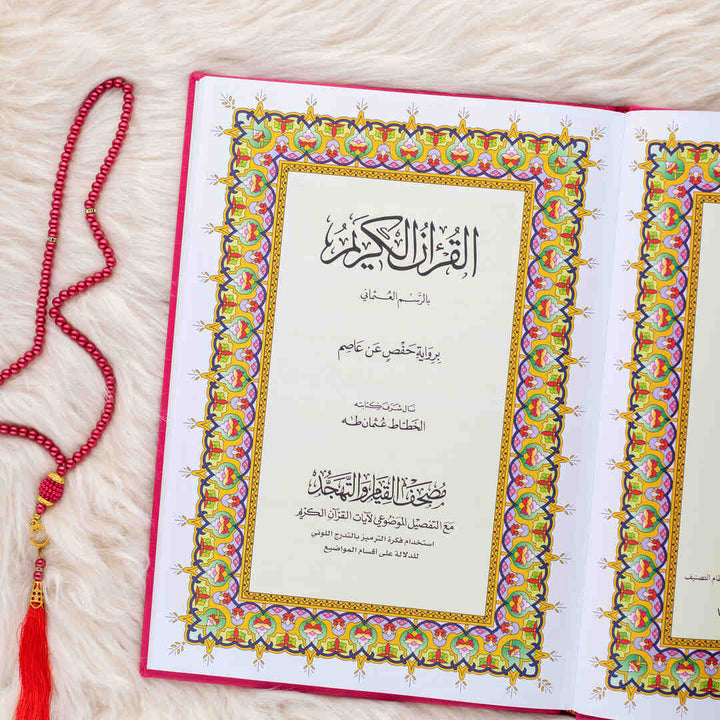 القرآن الكريم
بالرسم العثماني
برواية حفص عن عاصم
نال شرف كتابته
الخطاط عثمان طه
مصحف القيام والتهجد
مع التفصيل الموضوعي لآيات القرآن الكريم
استخدام فكرة الترميز بالتدرج اللوني
للدلالة على أقسام المواضيع
التصنيف